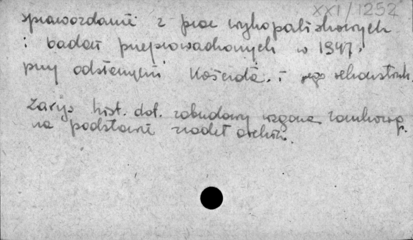 XXI/1252
sprawozdanie z prac wykopaliskowych
i badań przeprowadzonych w 1947.
przy odsłonięciu Kościoła. i jego rekonstruk.
Zarys hist. dot. zabudowy wzgórza zamkoweg.
na podstawie źródeł archiw.